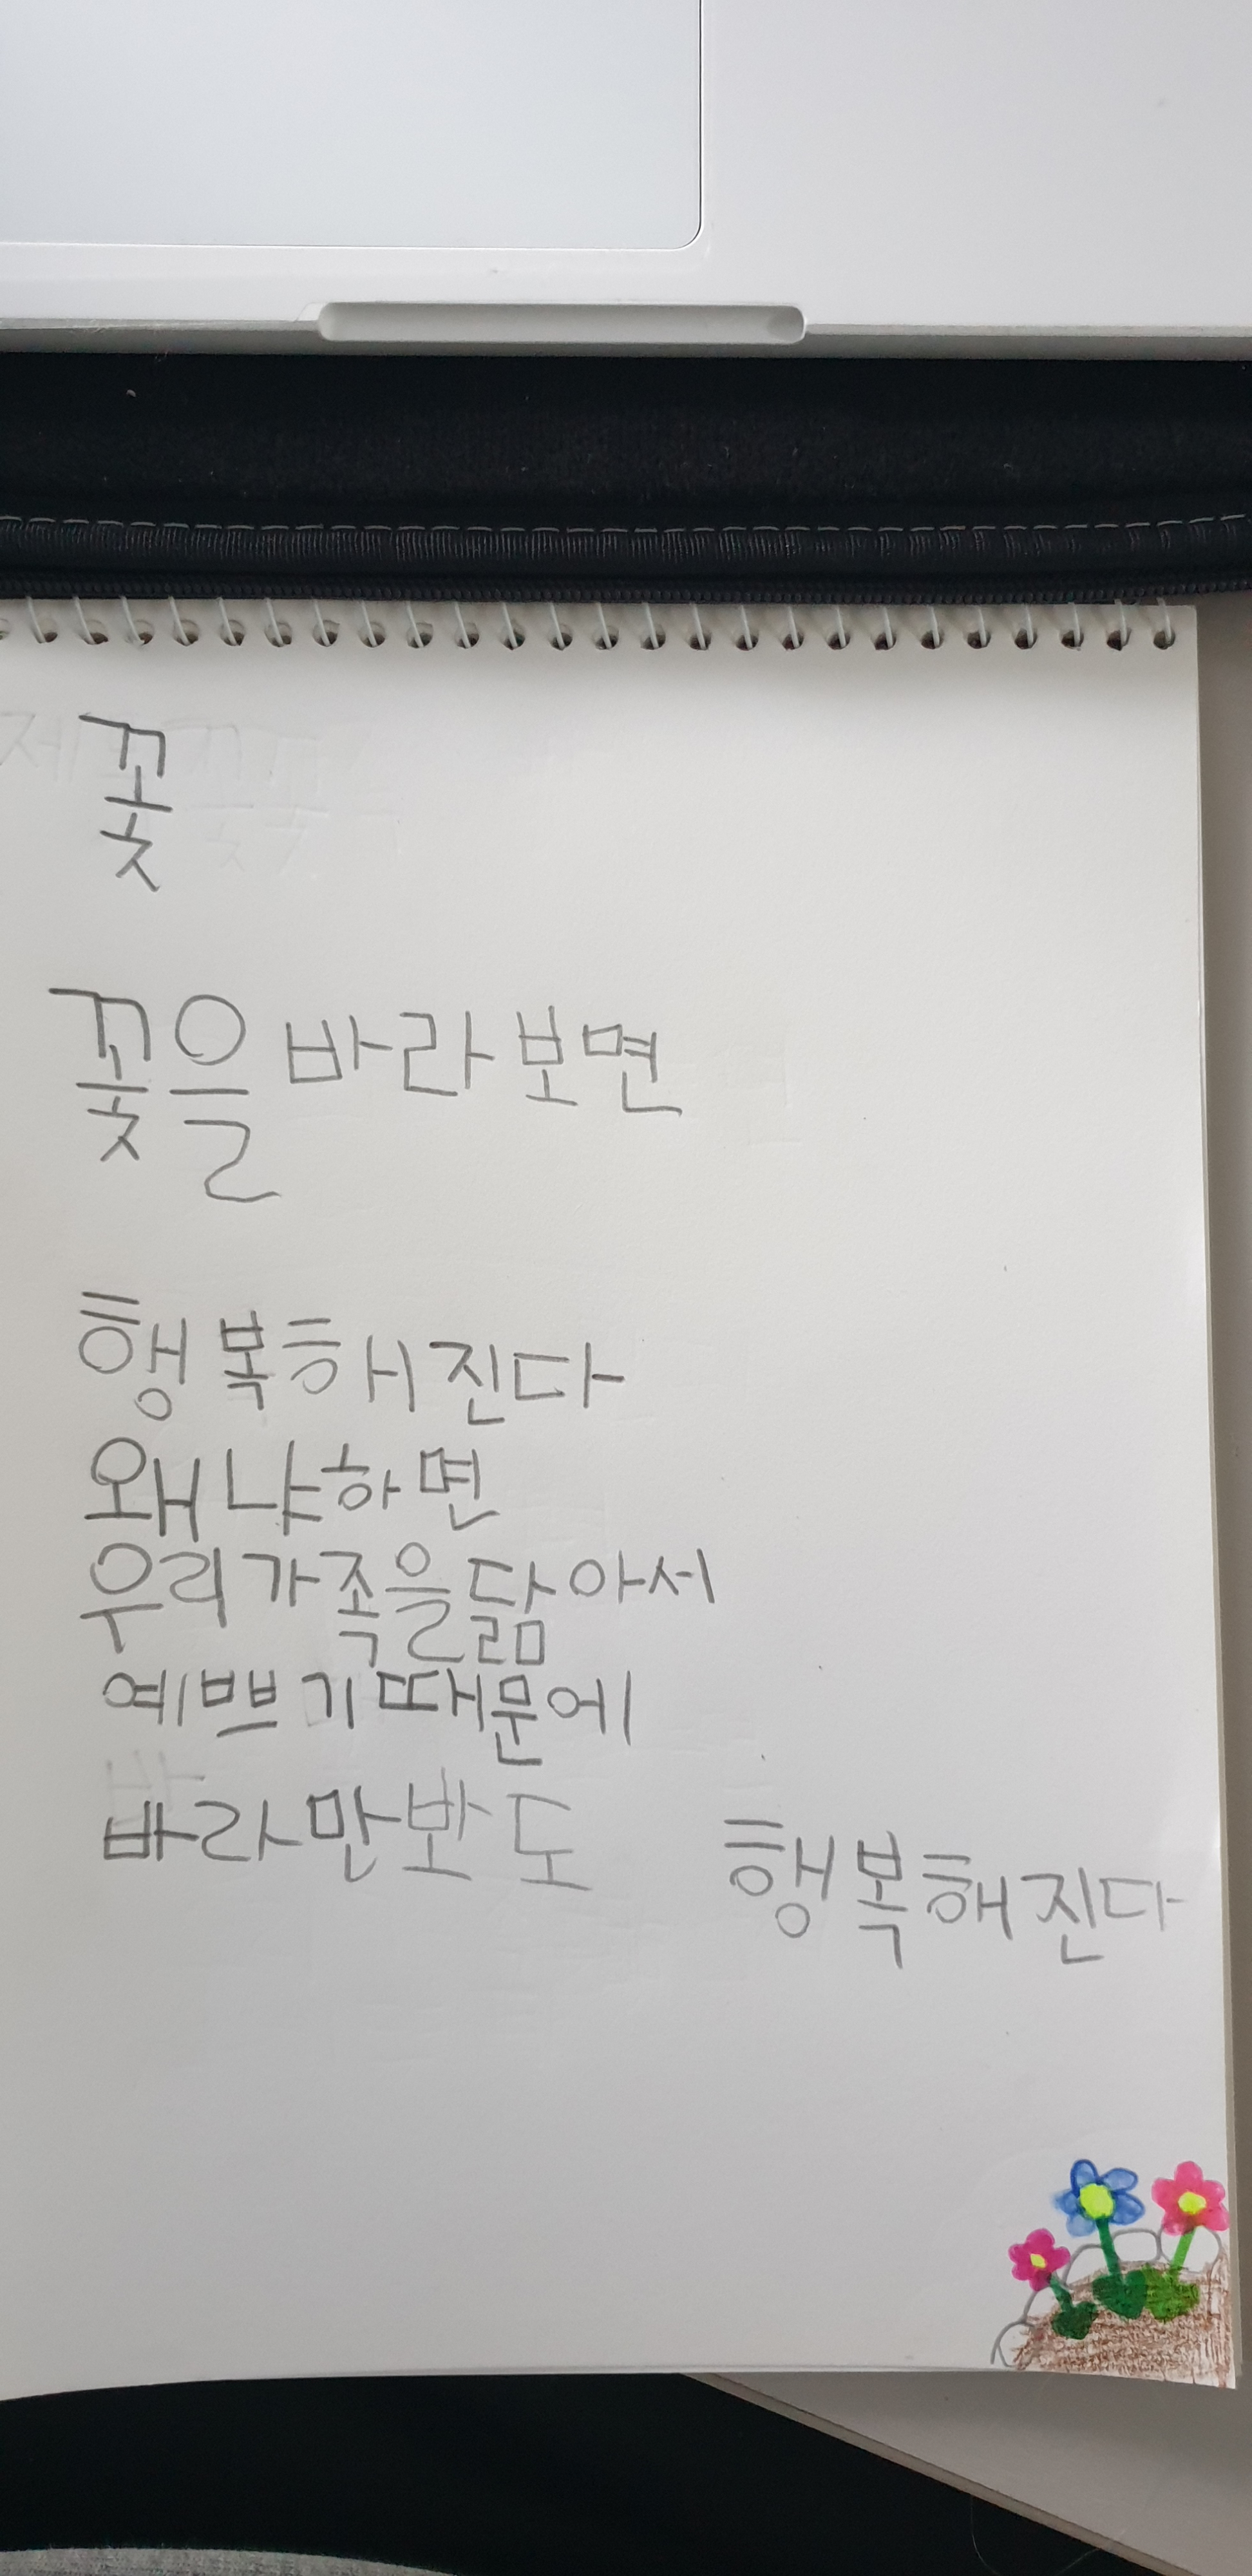 꽃
꽃을 바라보면
행복해진다
왜냐하면
우리가족을닮아서
예쁘기때문에
바라만봐도 행복해진다